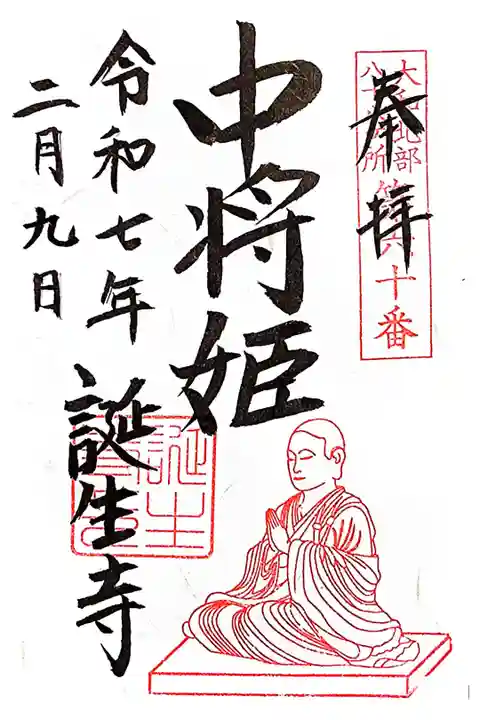 奉拝
大和北部
八十八所
第六十番
中将姫
令和七年
二月九日
誕生寺
誕生